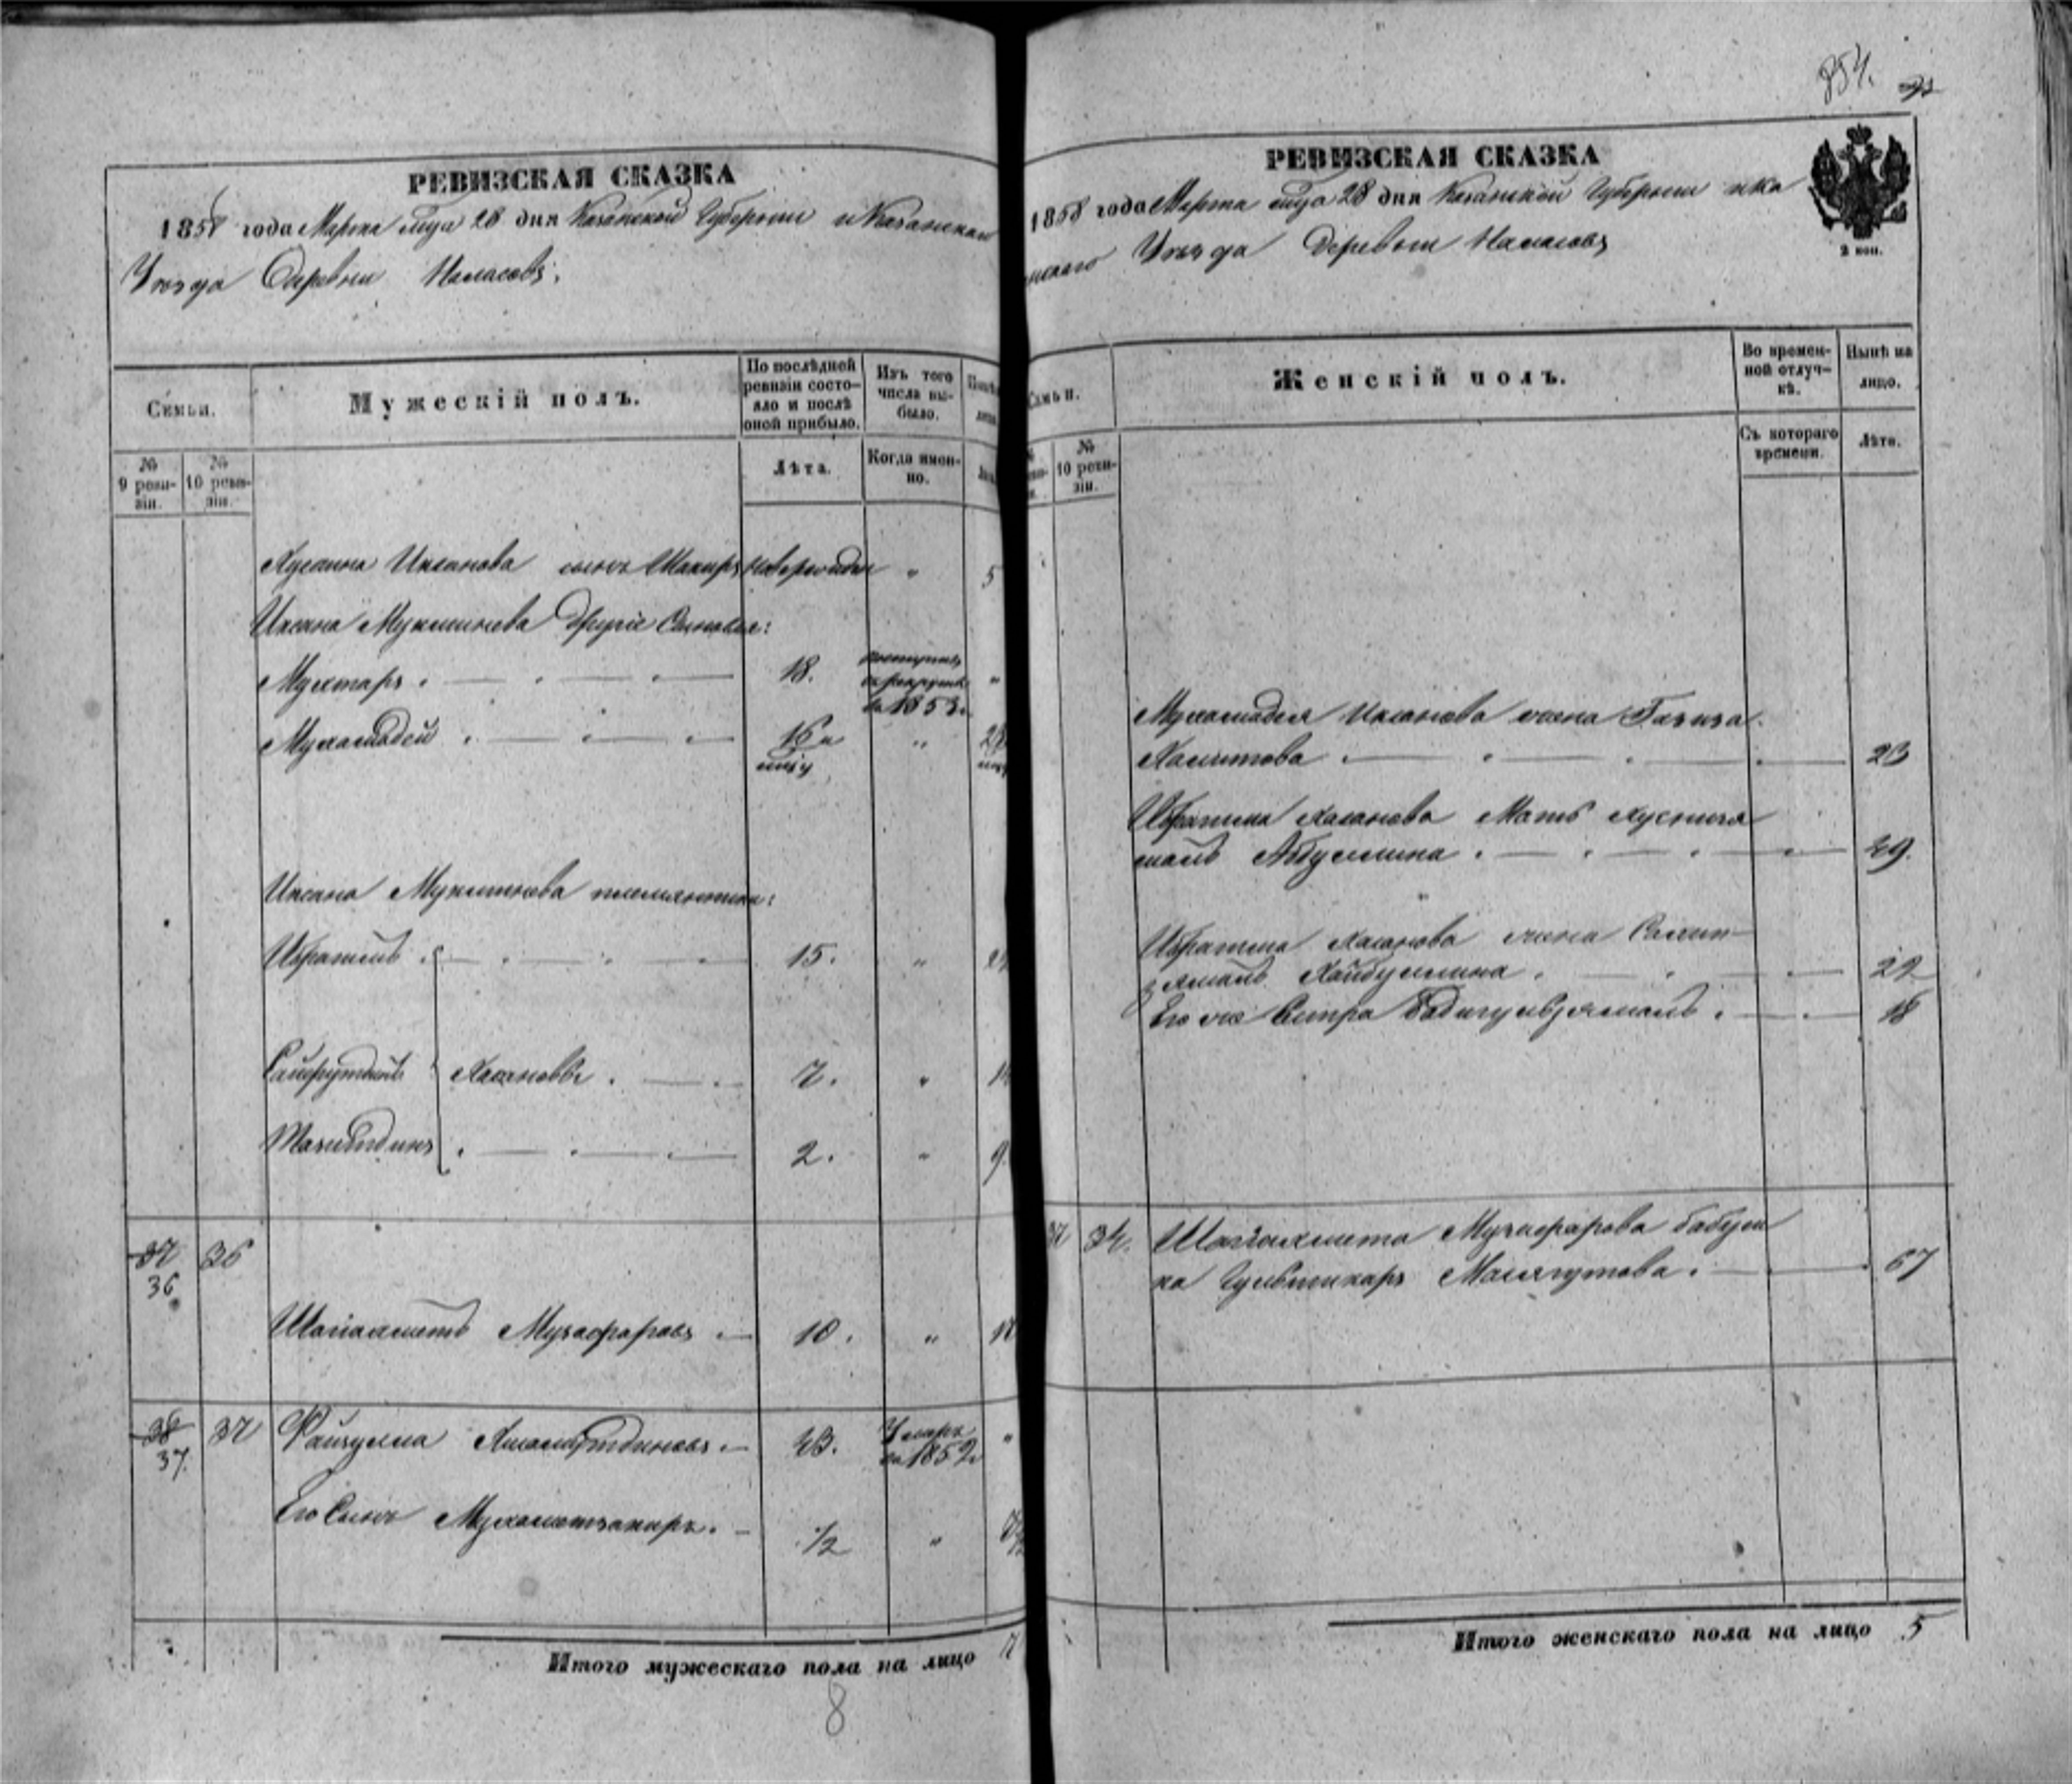 854.
РЕВИЗСКАЯ СКАЗКА
1858 года Марта м͠ца 28 дня Казанской Губернии и Казанскаго
Уѣзда Деревни Наласовъ.
Семьи.
Мужескій полъ.
По послѣдней ревизіи состояло и послѣ оной прибыло.
Изъ того числа выбыло.
№ 9 ревизіи.
№ 10 ревизіи.
Лѣта.
Когда именно.
Хусаина Иксанова сынъ Шакиръ " 5
Иксана Мукминева другіе Сыновья:
Мухтаръ 18. поступилъ въ рекруты въ 1853 г. "
Мухамадей 16 и "
Иксана Мукминева племянники:
Ибрагимъ 15. "
Сайфутдинъ Хасановы 7. "
Тазитдинъ 2. " 9
37 36 36
Шагіахметъ Музафаровъ 10. "
38 37 37 Файзулла Хисамутдиновъ 43. Умеръ въ 1852 г. "
Его Сынъ Мухаметзакиръ. 1/2 "
Итого мужескаго пола на лицо 7
8
РЕВИЗСКАЯ СКАЗКА
1858 года Марта м͠ца 28 дня Казанской Губерніи и Ка
занскаго Уѣзда Деревни Наласовъ
2 коп.
Семьи.
Женскій полъ.
Во временной отлучкѣ.
Нынѣ на лицо.
№ 10 ревизіи.
Съ котораго времени.
Лѣта.
Мухамадея Иксанова жена Газиза
Хамитова 23
Ибрагима Хасанова Мать Хуснизя
малъ Абдуллина 49.
Ибрагима Хасанова жена Салип
зямалъ Хайбуллина 22
Его же Сестра Бадигулзямалъ 18
37 34. Шагіахмета Музафарова бабуш
ка Гульшикаръ Масягутова 67
Итого женскаго пола на лицо 5